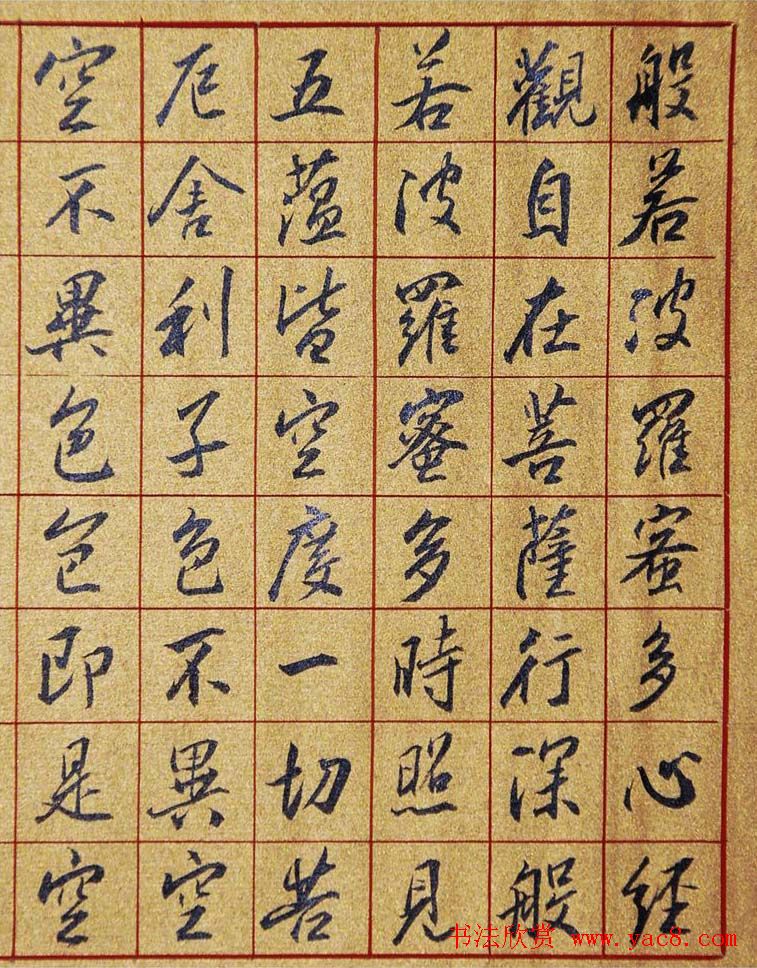 般若波羅蜜多心経
觀自在菩薩行深般
若波羅蜜多時照見
五蘊皆空度一切苦
厄舍利子色不異空
空不異色色即是空
书法欣赏 www.yac8.com